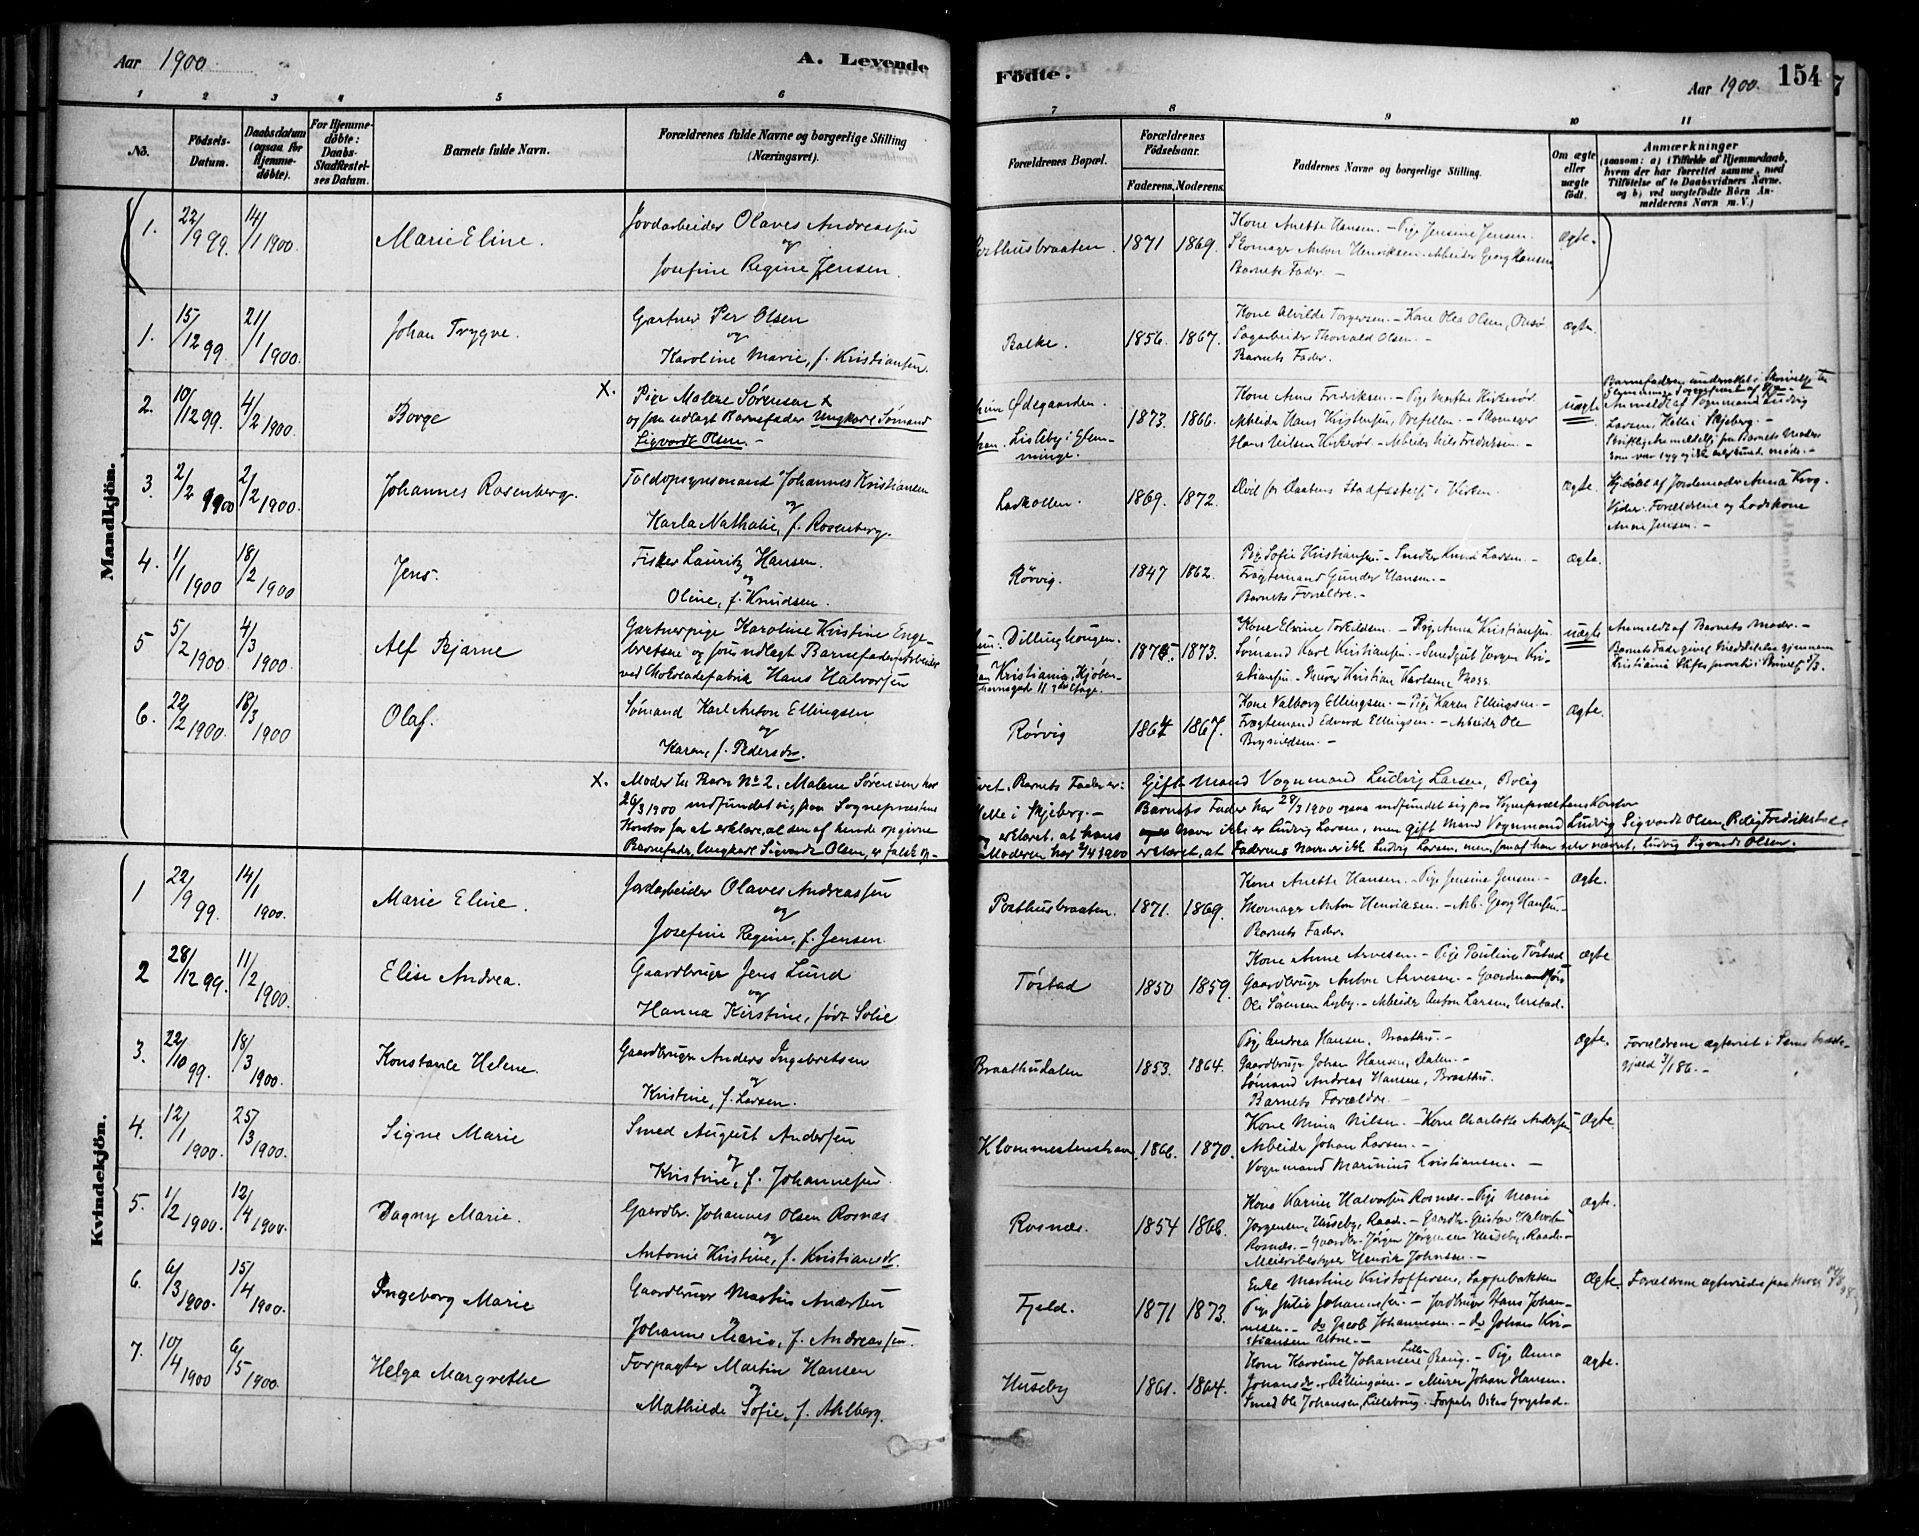 Aar 1900
A. Levende
Födte.
Aar 1900.
154
1 2 3 4 5 6 7 8 9 10 11
No.
Fødsels-Datum.
Daabsdatum (ogsaa for Hjemme-døbte).
For Hjemme-døbte: Daabs-Stadfæstel-ses Datum.
Barnets fulde Navn.
Forældrenes fulde Navne og borgerlige Stilling (Næringsvei).
Forældrenes Bopæl.
Forældrenes Fødselsaar.
Faderens. Moderens.
Faddernes Navne og borgerlige Stilling.
Om ægte eller uægte født.
Anmærkninger
(saasom: a) (Tilfælde af Hjemmedaab, hvem der har forrettet samme, med Tilføielse af to Daabsvidners Navne, og b) ved uægtefødte Börn An-melderens Navn m. V.)
Mandkjön.
1. 22/9 99. 14/1 1900. Marie Eline. Jordarbeider Olaves Andreassen
og
Josefine Regine Jensen.
1871 1869. Kone Anette Hansen. - Pige Jensine Jensen. Ægte.
Skomager Anton Henriksen. - Arbeider Georg Hansen
Barnets Fader. -
1. 15/12 99. 21/1 1900. Johan Trygve. Gartner Per Olsen
og
Karoline Marie, f. Kristiansen.
Balke. 1856. 1867. Kone Alvilde Torgersen. - Kone Olea Olsen, Ægte.
Sagarbeider Thorvald Olsen. -
Barnets Fader.
2. 10/12 99. 4/2 1900. Borge X. Pige Malene Sørensen
og som udlagt Barnefader Ungkarl Sømand
Sigvardt Olsen. -
Ødegaarden
Lisleby i Glem-
minge.
1873. 1866. Kone Anne Fredriksen. - Pige Marthe uægte
Arbeider Hans Kristensen, - Skomager
Hans Nilsen - Arbeider Nils Fredriksen. -
Anmeldt af Vognmand Ludvig
Larsen, i Skjeberg. -
3. 2/2 1900 2/2 1900. Johannes Rosenberg. Toldopsynsmand Johannes Kristiansen
og
Karla Nathalie, f. Rosenberg.
Larkollen. 1869. 1872. Død før Daabens Stadfæstelse i Kirken. Ægte.
Hjdøbt af Jordemoder Anna Krog
Vidner: Forældrene og Lodskone
Anne Jensen. -
4. 1/1 1900 18/2 1900. Jens. Fisker Lauritz Hansen.
og
Oline, f. Knudsen.
Rørvig. 1847 1862. Pige Sofie Kristiansen - Smed Knud Larsen. - Ægte.
Fragtemand Gunder Hansen. -
Barnets Forældre. -
5 5/2 1900. 4/3 1900. Alf Bjarne. Gartnerpige Karoline Kristine Enge-
bretsen og som udlagt Barnefader Arbeider
ved Chokoladefabrik Hans Halvorsen
Dillinghaugen.
Kristiania, Kjøben-
havnsgade 11 Etage.
1873. Kone Elvine Torkildsen. - Pige Anna Kristiansen. uægte
Sømand Karl Kristiansen. - Smedgut Jørgen Kri-
stiansen. - Murer Kristian Karlsen Moss.
Anmeldt af Barnets Moder. -
Barnets Fader givet Meddelelse gjennem
Kristiania Stiftsprovsti
6. 22/2 1900. 18/3 1900 Olaf. Sømand Karl Anton Ellingsen
og
Karen, f. Pedersdr.
Rørvig 1864 1867. Kone Valborg Ellingsen. - Pige Karen Ellingsen. - Ægte.
Fragtemand Edvard Ellingsen. - Arbeider Ole
Brynildsen. -
X. Moder til Barn No 2, Malene Sørensen har
26/3 1900 indfundet sig paa Sognepræstens
Kontor for at erklære, at den af hende opgivne
Barnefader, Ungkarl Sigvardt Olsen, er falsk op-
givet, Barnets Fader er: Gift Mand Vognmand Ludvig Larsen, Bolig
i Skjeberg. - Barnets Fader har 28/3 1900 ogsaa indfundet sig paa Sognepræstens Kontor
og erklæret, at hans Navn ikke er Ludvig Larsen, men gift Mand Vognmand Ludvig Sigvardt Olsen, Bolig Fredrikstad
Moderen har 2/4 1900 erklæret, at Faderens Navn er ikke Ludvig Larsen, men, som af han selv nævnt, Ludvig Sigvardt Olsen.
Kvindekjön.
1 22/9 99. 14/1 1900. Marie Eline. Jordarbeider Olaves Andreassen
og
Josefine Regine, f. Jensen.
Posthusbraaten. 1871. 1869. Kone Anette Hansen. - Pige Jensine Jensen. - Ægte.
Skomager Anton Henriksen. - Arb. Georg Hansen. -
Barnets Fader.
2 28/12 99. 11/2 1900. Elise Andrea. Gaardbruger Jens Lund
og
Hanna Kirstine, født Solie
Tøstad 1850 1859. Kone Anne Arvesen. - Pige Pauline Tøstad Ægte
Gaardbruger Anton Arvesen. -
Ole Sørensen Lyby. - Arbeider Anton Larsen,
3. 22/10 99. 18/3 1900. Konstance Helene. Gaardbruger Anders Ingebretsen
og
Kristine, f. Larsen.
Braathudalen 1853. 1864. Pige Andrea Hansen, Braathu. - Ægte.
Gaardbruger Johan Hansen, Dalen. -
Sømand Andreas Hansen, Braathu.
Barnets Forældre. -
4. 12/1 1900. 25/3 1900. Signe Marie Smed August Andersen
og
Kristine, f. Johannesen.
1866. 1870. Kone Mina Nilsen. - Kone Charlotte Andersen Ægte.
Arbeider Johan Larsen. -
Vognmand Marinius Kristiansen. -
5. 1/2 1900. 12/4 1900. Dagny Marie. Gaardbr. Johannes Olsen Rosnæs
og
Antonie Kristine, f. Kristiansdr.
Rosnæs. 1854 1866. Kone Karine Halvorsen Rosnæs. - Pige Maria Ægte.
Jørgensen, Huseby, Raade. - Gaardbr. Gustav Halvorsen
Rosnæs. - Gaardbr. Jørgen Jørgensen Huseby, Raade. -
Meieribestyrer Henrik Johnsen. -
6. 6/3 1900. 15/4 1900. Ingeborg Marie Gaardbruger Martin Andersen
og
Johanne Marie, f. Andreassen.
Fjeld. 1871 1873. Enke Martine Kristoffersen, Ægte.
Pige Julie Johannesen. - Jordbruger Hans Johan-
nesen. - do Jacob Johannesen. - do Johan Kri-
stiansen
7. 10/4 1900 6/5 1900. Helga Margrethe Forpagter Martin Hansen
og
Mathilde Sofie, f. Ahlberg.
Huseby 1861. 1864. Kone Karoline Johansen, - Pige Anna Ægte.
Johansdr., Dillingøen. - Murer Johan Hansen.
Smed Ole Johansen, Lilleborg.